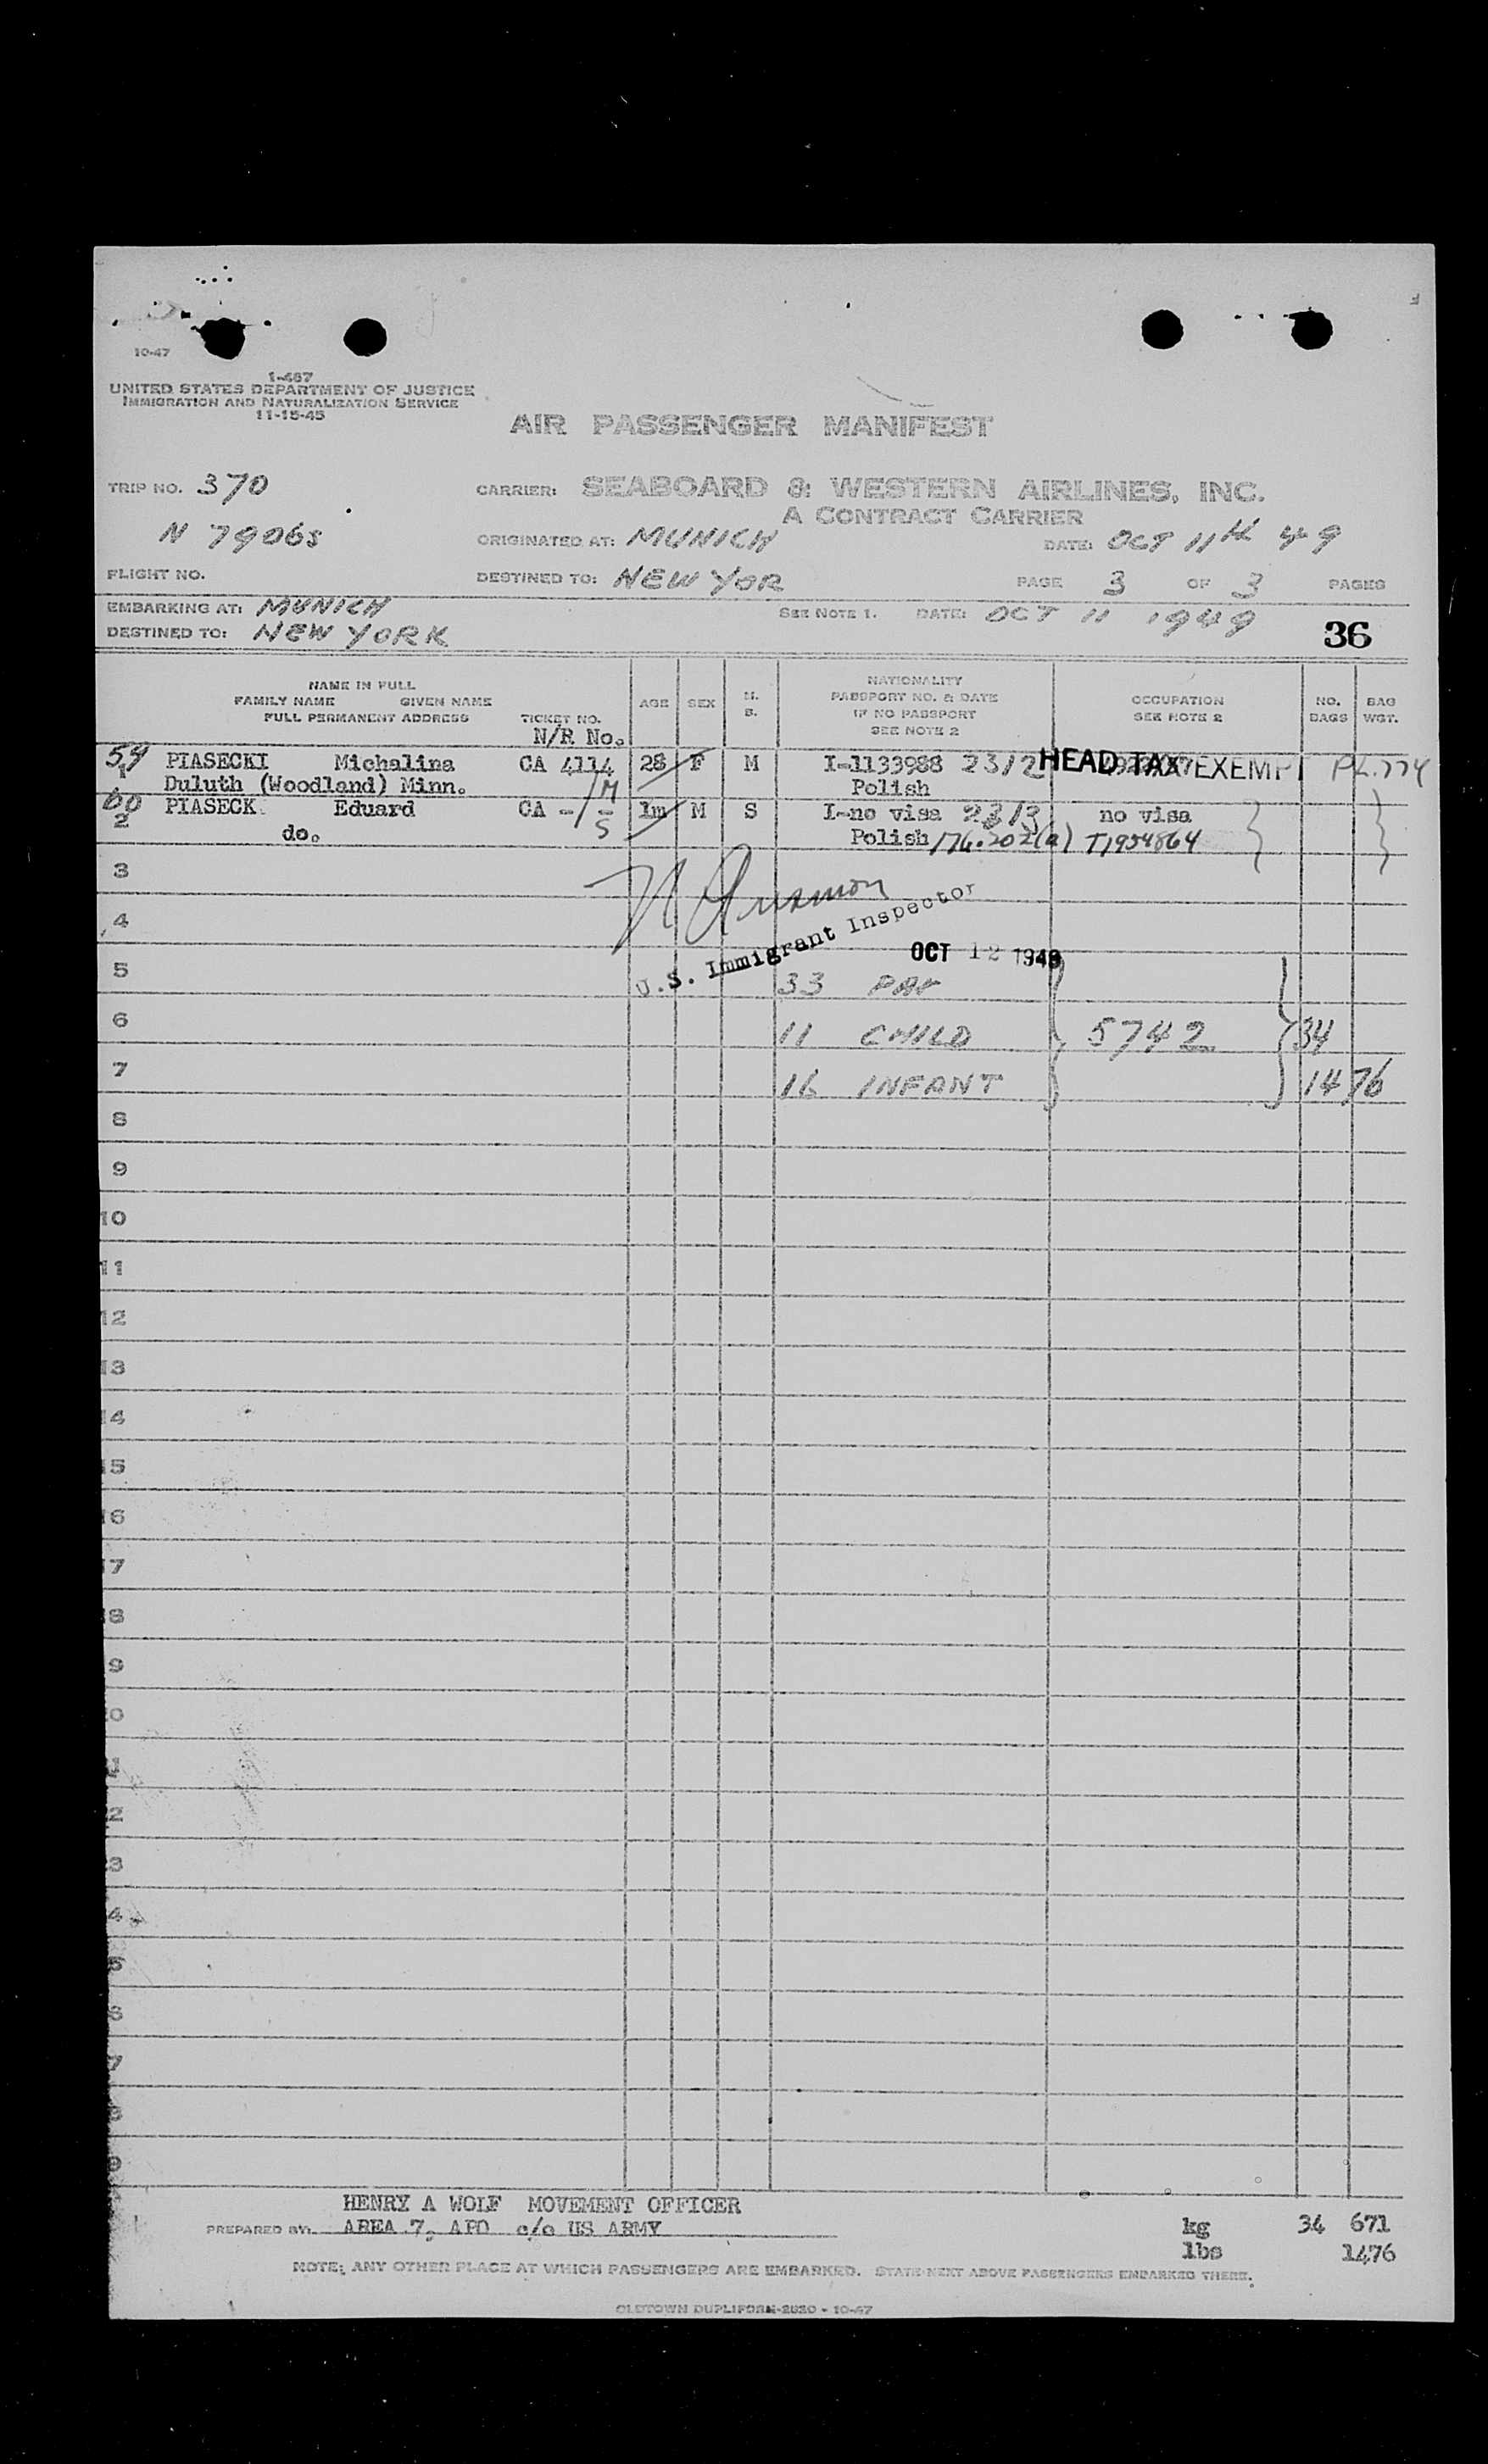 10-47
I-487
UNITED STATES DEPARTMENT OF JUSTICE
IMMIGRATION AND NATURALIZATION SERVICE
11-15-45
AIR PASSENGER MANIFEST
TRIP NO. 370
CARRIER: SEABOARD & WESTERN AIRLINES, INC.
A CONTRACT CARRIER
N 7906S
ORIGINATED AT: MUNICH
DATE: OCT 11th 49
FLIGHT NO.
DESTINED TO: NEW YOR
PAGE 3 OF 3 PAGES
EMBARKING AT: MUNICH
SEE NOTE 1. DATE: OCT 11 1949
DESTINED TO: NEW YORK
36
NAME IN FULL
FAMILY NAME GIVEN NAME
FULL PERMANENT ADDRESS
TICKET NO.
N/R No.
AGE
SEX
M.
S.
NATIONALITY
PASSPORT NO. & DATE
IF NO PASSPORT
SEE NOTE 2
OCCUPATION
SEE NOTE 2
NO.
BAGS
BAG
WGT.
59 1 PIASECKI Michalina CA 4114 28 F M I-1133988 23/2 HEAD TAX EXEMPT
Duluth (Woodland) Minn. /M Polish
60 2 PIASECK Eduard CA -/- 1m M S I-no visa 23/3 no visa
do. S Polish 176.202(a) T1954864
3
U.S. Immigrant Inspector
4
OCT 12 1949
5
33 PAX
6
11 CHILD 5742 34
7
16 INFANT 1476
8
9
10
11
12
13
14
15
16
17
18
9
0
1
2
3
4
5
6
7
8
9
HENRY A WOLF MOVEMENT OFFICER
PREPARED BY: AREA 7, APO c/o US ARMY
kg 34 671
lbs 1476
NOTE: ANY OTHER PLACE AT WHICH PASSENGERS ARE EMBARKED. STATE NEXT ABOVE PASSENGERS EMBARKED THERE.
OLDTOWN DUPLIFORM-2830 - 10-47